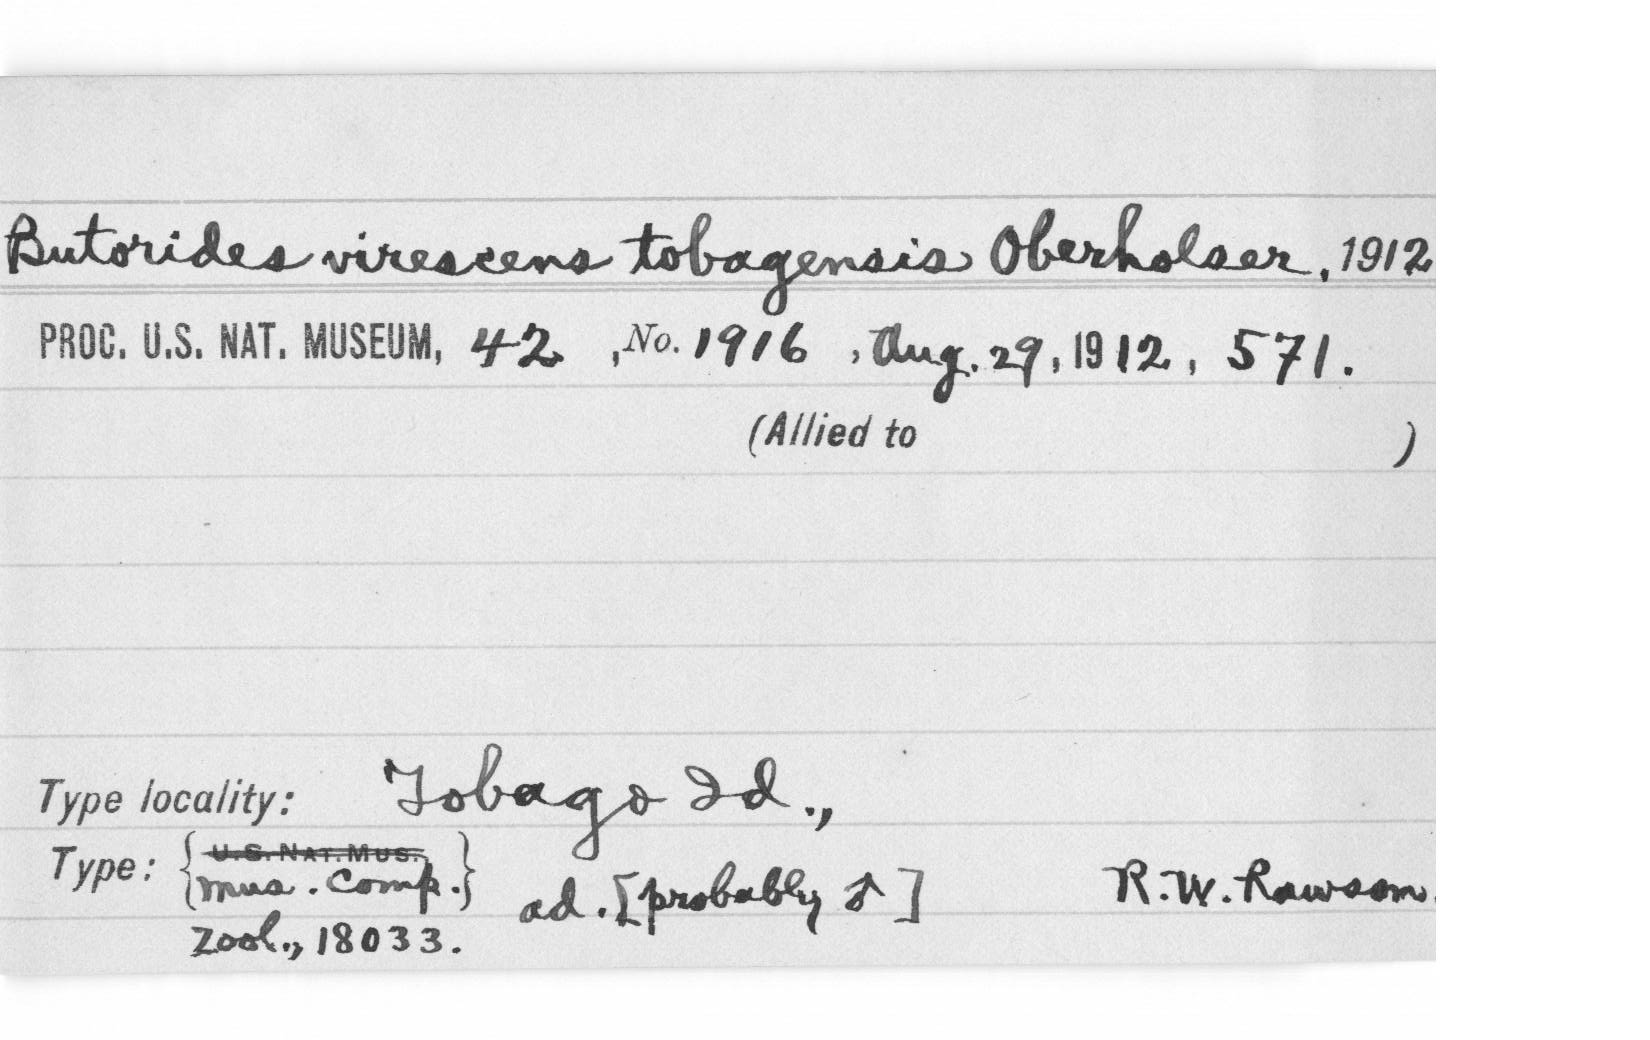 Butorides virescens tobagensis Oberholser, 1912
PROC. U.S. NAT. MUSEUM, 42, No. 1916, Aug. 29, 1912, 571.
(Allied to )
Type locality: Tobago Id.,
Type: { U.S. NAT. MUS.
Mus. Comp. } ad. [probably ♂] R.W. Rawson.
Zool., 18033.